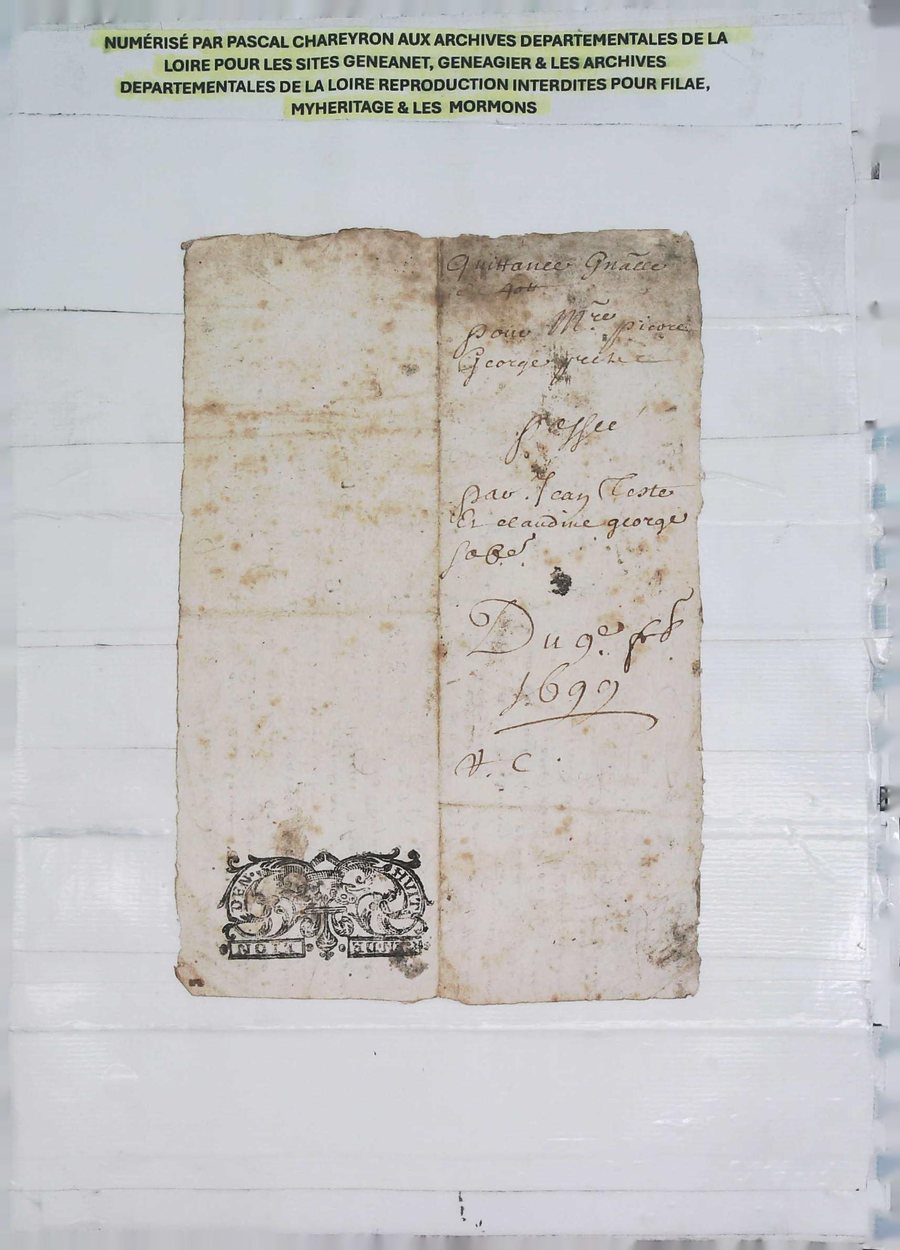 NUMÉRISÉ PAR PASCAL CHAREYRON AUX ARCHIVES DEPARTEMENTALES DE LA
LOIRE POUR LES SITES GENEANET, GENEAGIER & LES ARCHIVES
DEPARTEMENTALES DE LA LOIRE REPRODUCTION INTERDITES POUR FILAE,
MYHERITAGE & LES MORMONS
Quittance Gnãlle
pour Mre pierre
George
passee
par Jean Teste
Et claudine george
Du 9e feb
1699
V. C.
DEN. HUIT